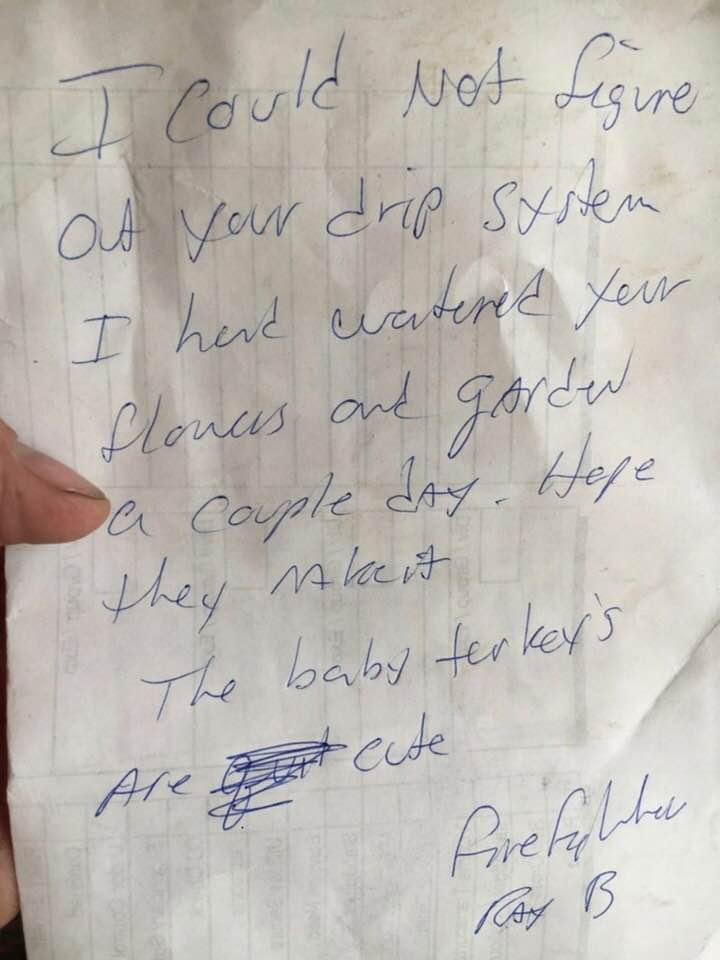 I Could Not figure
Out your drip system
I hand watered your
flowers and garden
a couple day. Hope
they make it
The baby terkey's
Are cute
firefighter
RAY B